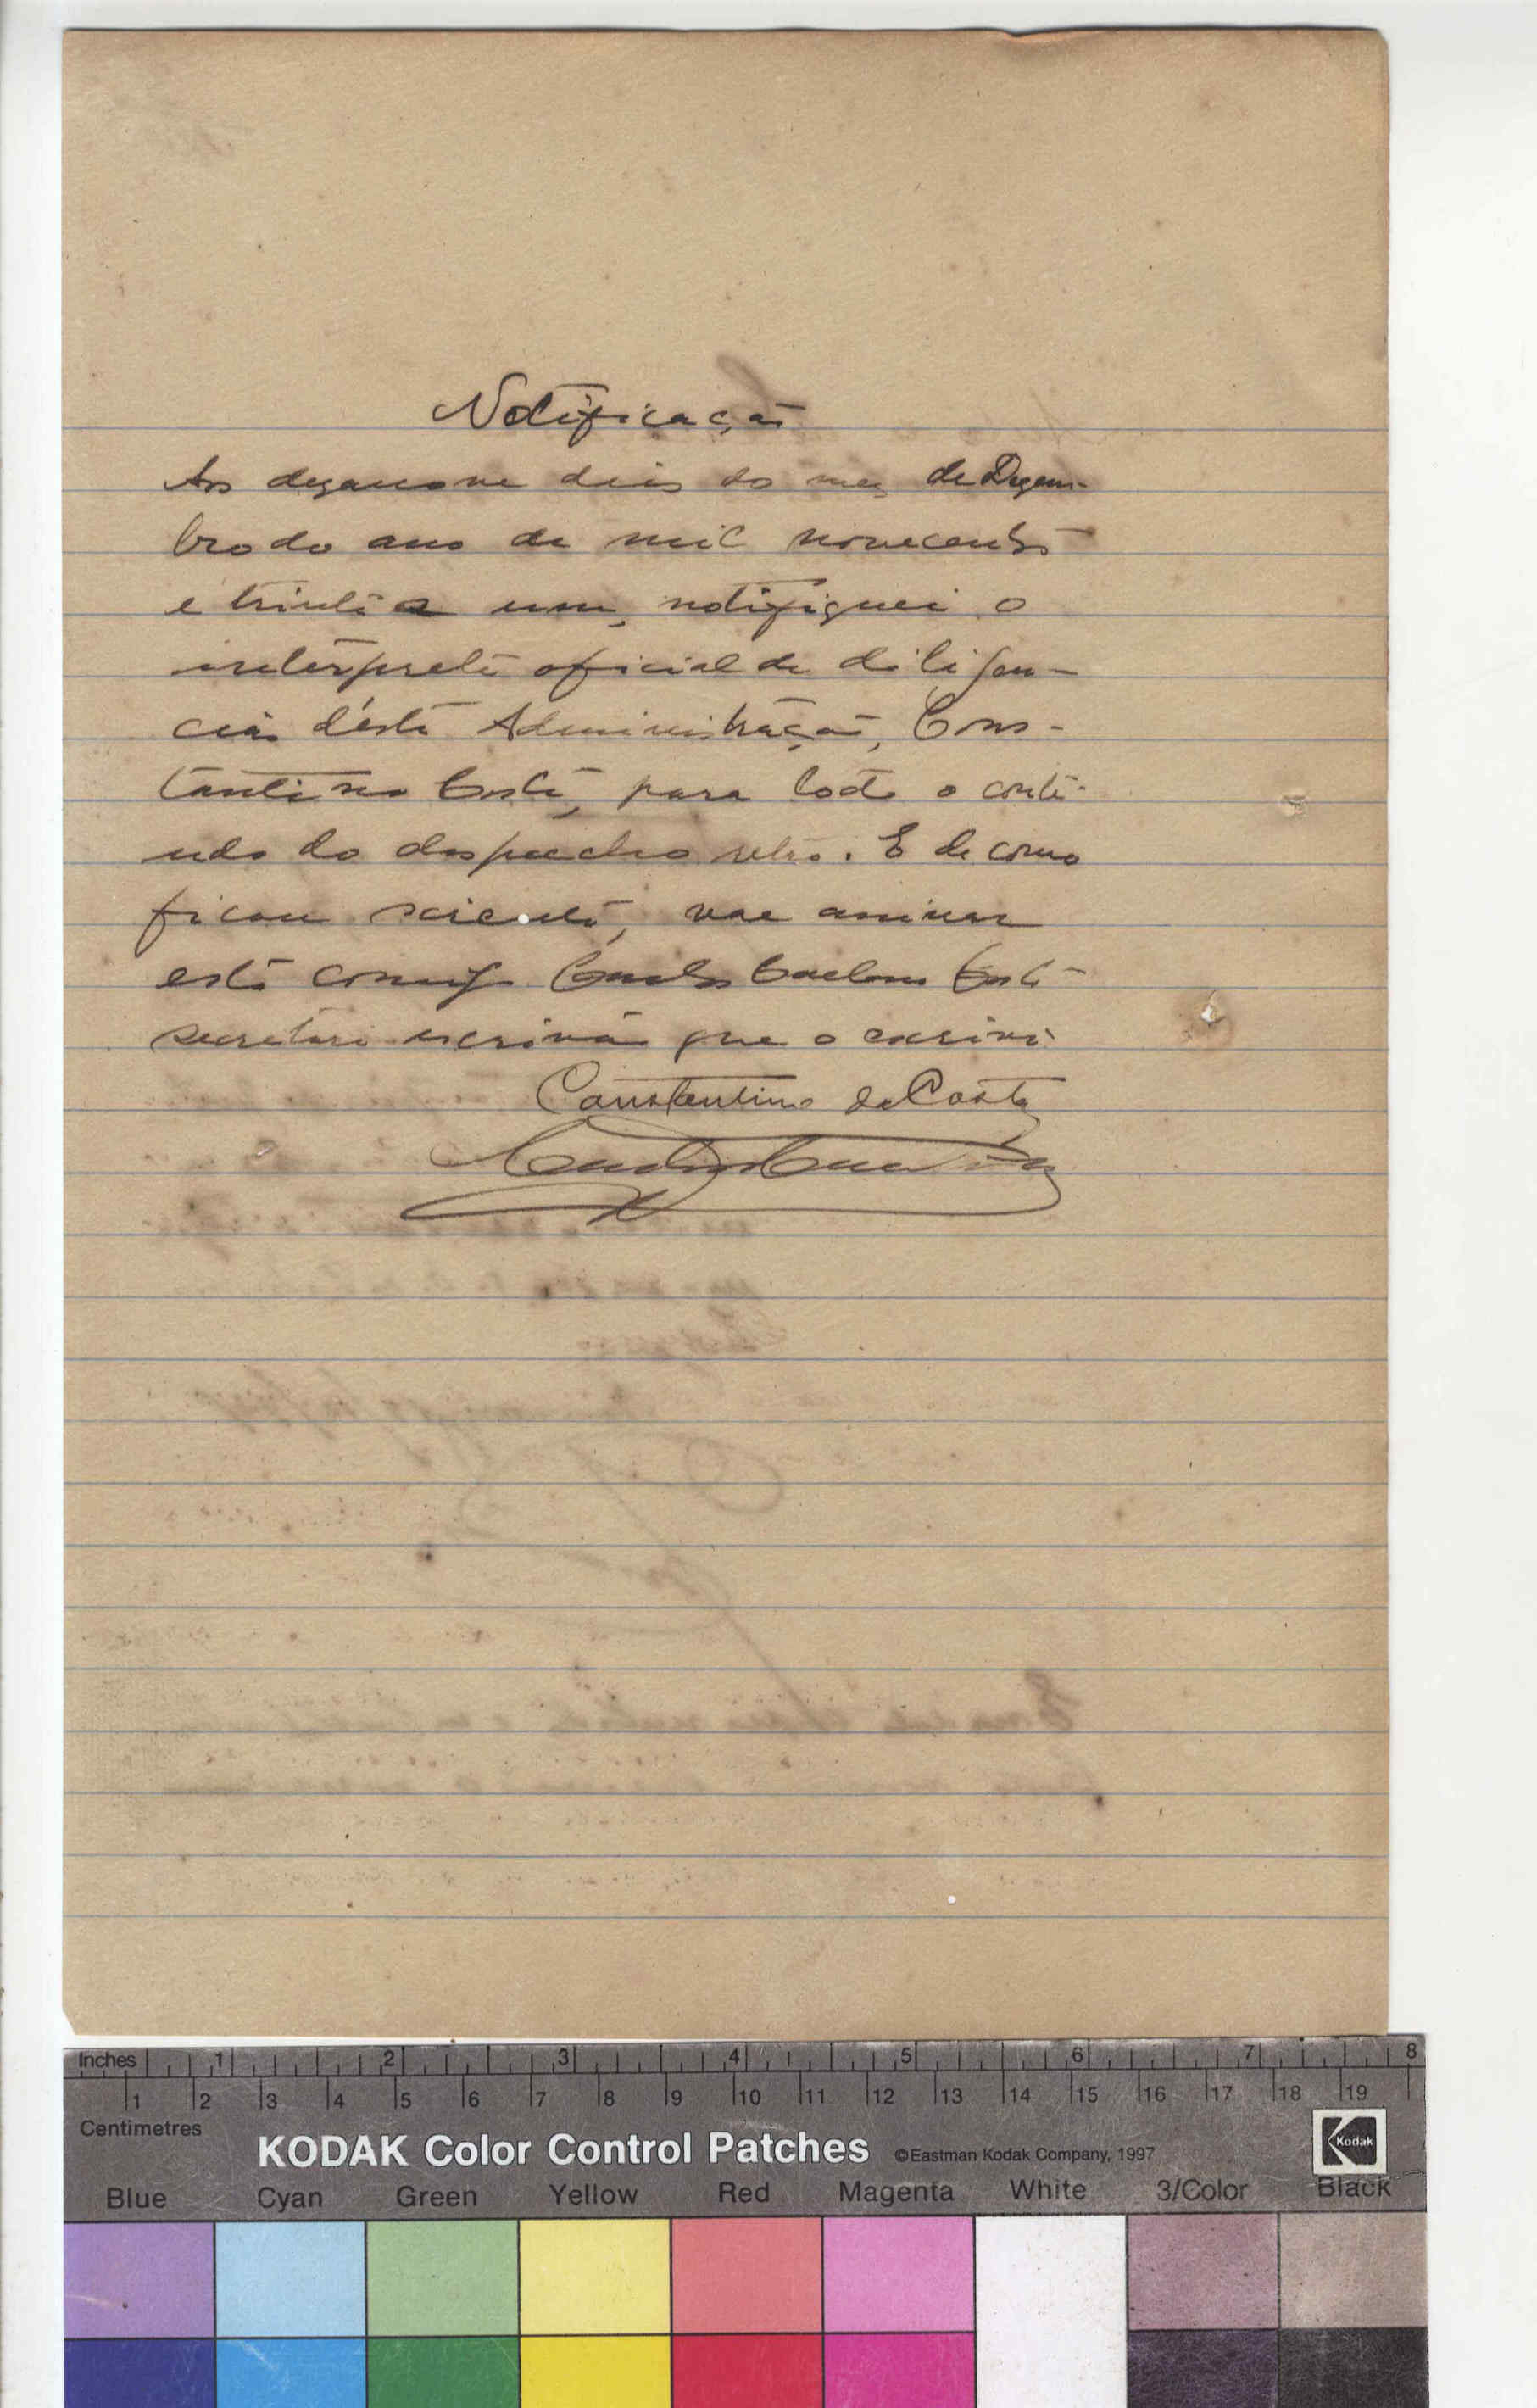 Notificação
Aos dezanove dias do mez de Dezem-
bro do ano de mil novecentos
e trinta e um, notifiquei o
interprete oficial de diligen-
cias d'ésta Administração, Cons-
tantino Costa, para todo o conte-
udo do despacho retro. E de como
ficou sciente, vae assinar
esta comigo Caetano Costa
secretario escrivão que o escrevi
Constantino da Costa
Inches 1 2 3 4 5 6 7 8
1 2 3 4 5 6 7 8 9 10 11 12 13 14 15 16 17 18 19
Centimetres
KODAK Color Control Patches ©Eastman Kodak Company, 1997
Kodak
Blue Cyan Green Yellow Red Magenta White 3/Color Black